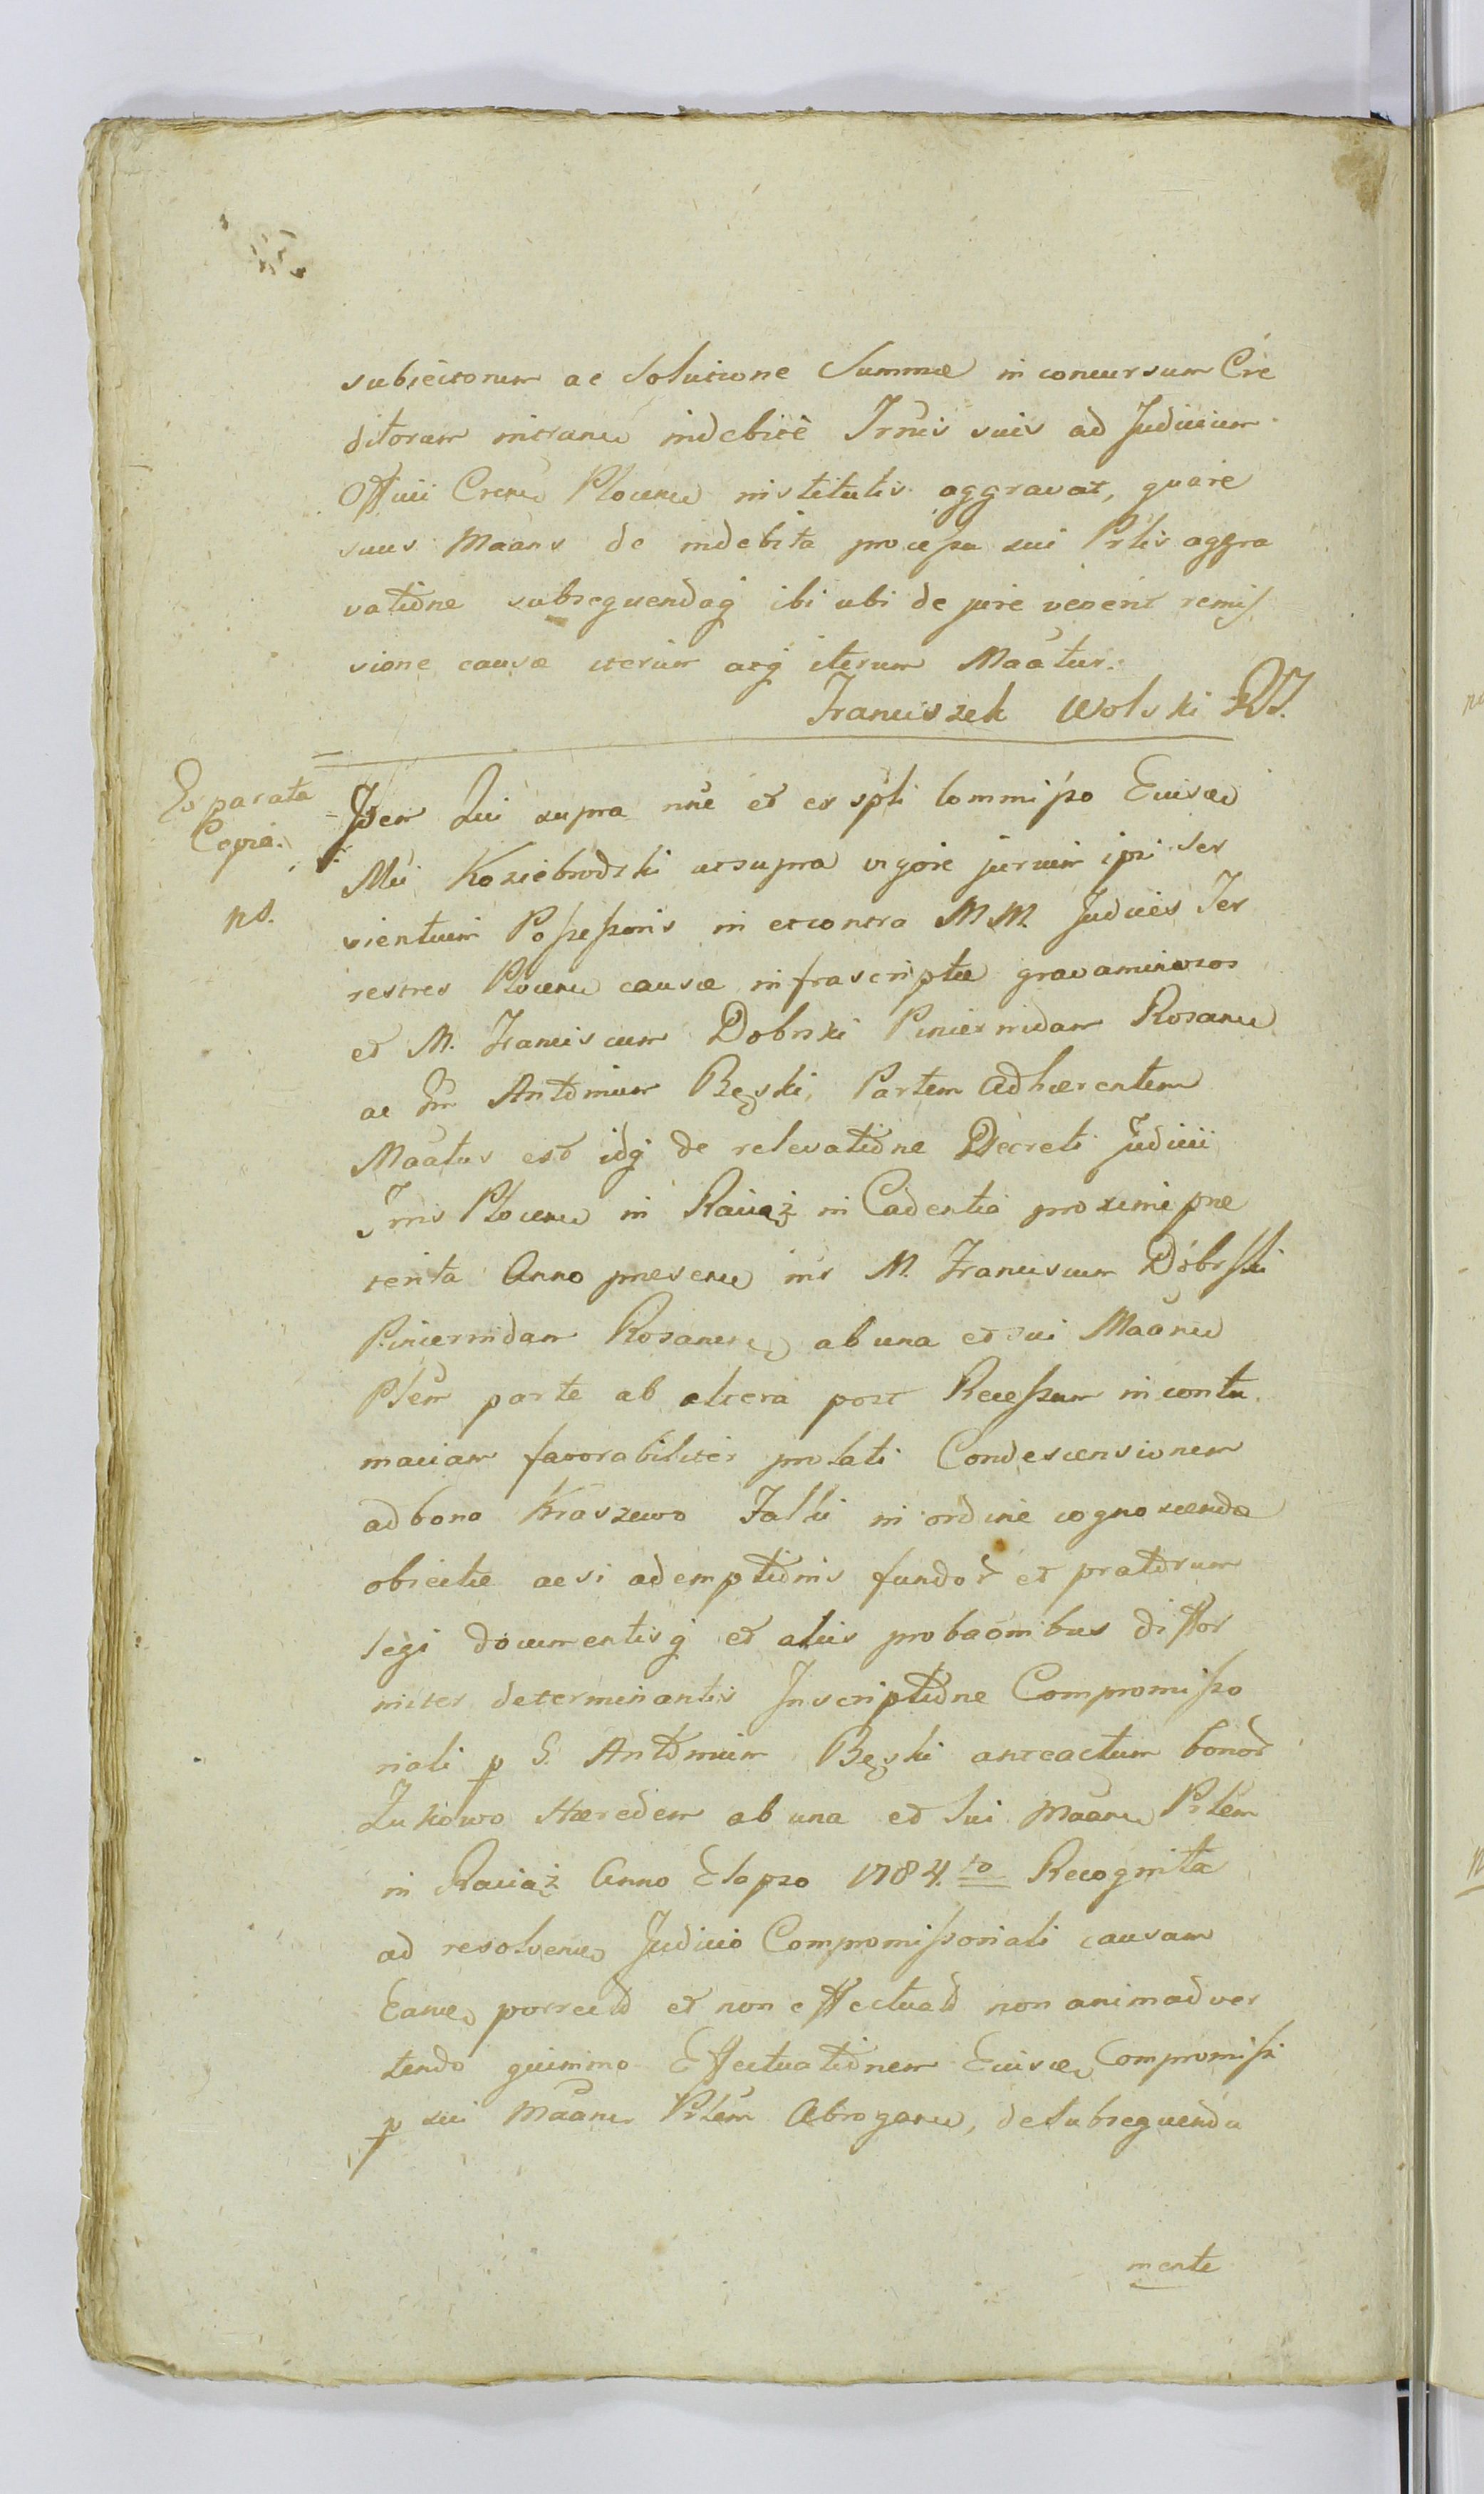 subiectorum ac Solutione Summæ in concursum Cre
ditorum intranɇ indebite Trnis suis ad Judicium
Officii Crenɇ Plocenɇ institutis aggravat, quare
suus Maans de indebita processu sui Prlis aggra
vatiōne subsequendaq ibi ubi de jure venerit remis
sione causæ iterum atq iterum Maatur.
Franciszek Wolski
Exparata
Copia.
ns.
Idem Qui supra nne et ex spli Commisso Eiusdɇ
Mci Koziebrodzki utsupra vigore jurium ipsi Ser
vientium Possessoris in etcontra M.M. Judices Ter
restres Plocenɇ causæ infrascriptæ gravaminosos
et M. Franciscum Dobrski Pincernidam Rozanɇ
ac Antonium Bęski, Partem Adhærentem
Maatus est idq de relevatiōne Decreti Judicii
Trris Plocenɇ in Raciąż in Cadentia proxime præ
terita Anno præsenɇ inr M. Franciscum Dobrski
Pincernidam Rozanenɇ ab una et sui Maanɇ
Plem parte ab altera post Recessum in contu
maciam favorabiliter prolati Condescensionem
ad bona Kraszewo Falki in ordine cognoscendæ
obiectæ acsi ademptiōnis fundor et pratorum
legi documentisq et aliis probaonibus diffor
miter determinantis Inscriptiōne Compromisso
riali p G. Antonium Bęski anteactum bonor
Zukowo Hæredem ab una et Sui Maanɇ Prlem
in Raciąż Anno Elapso 1784.to Recognita
ad resolvenɇ Judicio Compromissoriali causam
Eanɇ porrectā et non effectuatā non animadver
tendo quinimo Effectuatiōnem Eiusdɇ Compromissi
p sui Maanɇ Prlem Abroganɇ, desubsequenda
mente